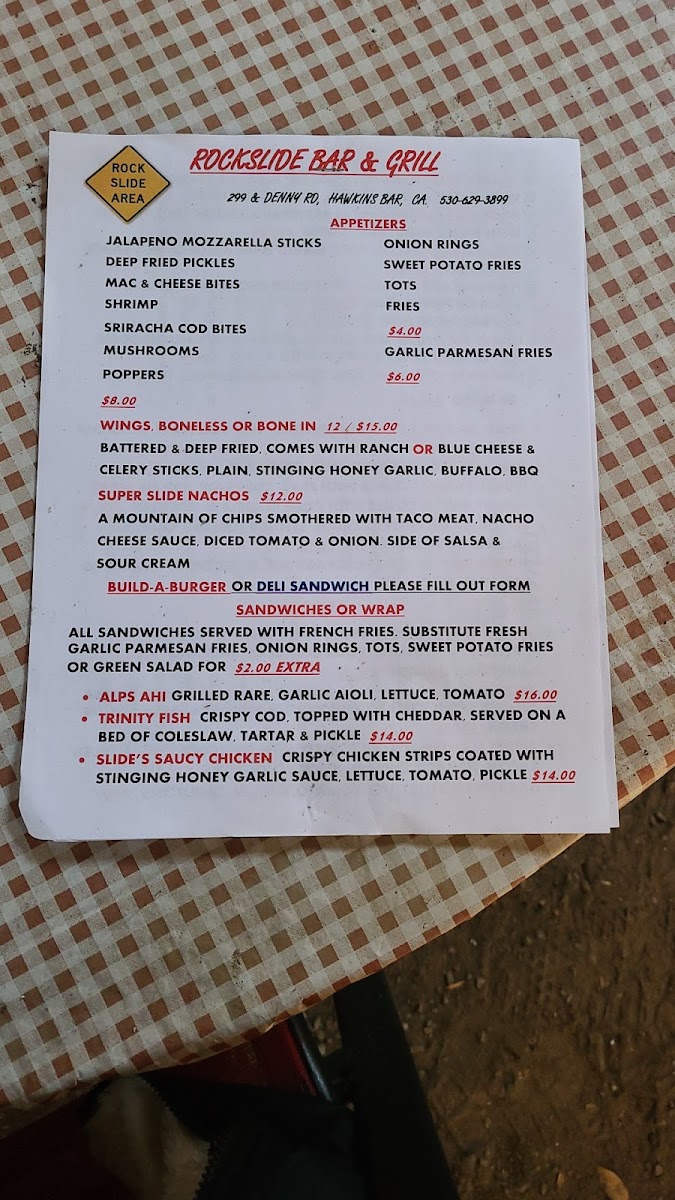 ROCK
SLIDE
AREA
ROCKSLIDE BAR & GRILL
299 & DENNY RD, HAWKINS BAR, CA. 530-629-3899
APPETIZERS
JALAPENO MOZZARELLA STICKS
DEEP FRIED PICKLES
MAC & CHEESE BITES
SHRIMP
SRIRACHA COD BITES
MUSHROOMS
POPPERS
$8.00
ONION RINGS
SWEET POTATO FRIES
TOTS
FRIES
$4.00
GARLIC PARMESAN FRIES
$6.00
WINGS, BONELESS OR BONE IN 12 / $15.00
BATTERED & DEEP FRIED. COMES WITH RANCH OR BLUE CHEESE &
CELERY STICKS. PLAIN, STINGING HONEY GARLIC, BUFFALO, BBQ
SUPER SLIDE NACHOS $12.00
A MOUNTAIN OF CHIPS SMOTHERED WITH TACO MEAT, NACHO
CHEESE SAUCE, DICED TOMATO & ONION. SIDE OF SALSA &
SOUR CREAM
BUILD-A-BURGER OR DELI SANDWICH PLEASE FILL OUT FORM
SANDWICHES OR WRAP
ALL SANDWICHES SERVED WITH FRENCH FRIES. SUBSTITUTE FRESH
GARLIC PARMESAN FRIES, ONION RINGS, TOTS, SWEET POTATO FRIES
OR GREEN SALAD FOR $2.00 EXTRA
• ALPS AHI GRILLED RARE, GARLIC AIOLI, LETTUCE, TOMATO $16.00
• TRINITY FISH CRISPY COD, TOPPED WITH CHEDDAR, SERVED ON A
BED OF COLESLAW, TARTAR & PICKLE $14.00
• SLIDE'S SAUCY CHICKEN CRISPY CHICKEN STRIPS COATED WITH
STINGING HONEY GARLIC SAUCE, LETTUCE, TOMATO, PICKLE $14.00